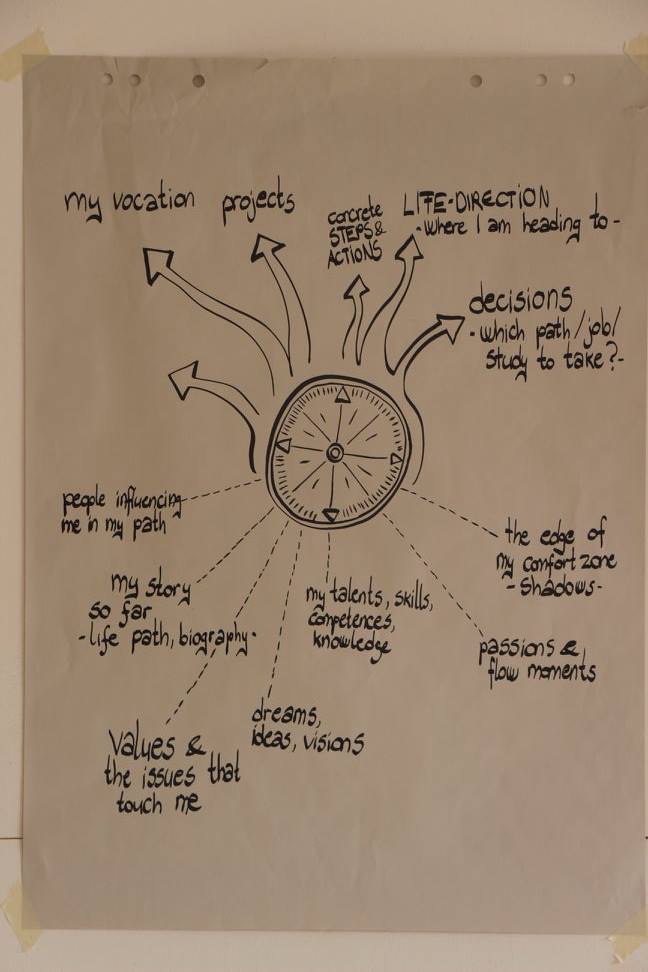 my vocation
projects
concrete
STEPS &
ACTIONS
LIFE-DIRECTION
- where I am heading to -
decisions
- which path/job/
study to take? -
people influencing
me in my path
my story
so far
- life path, biography -
values &
the issues that
touch me
dreams,
ideas, visions
my talents, skills,
competences,
knowledge
passions &
flow moments
the edge of
my comfort zone
- shadows -